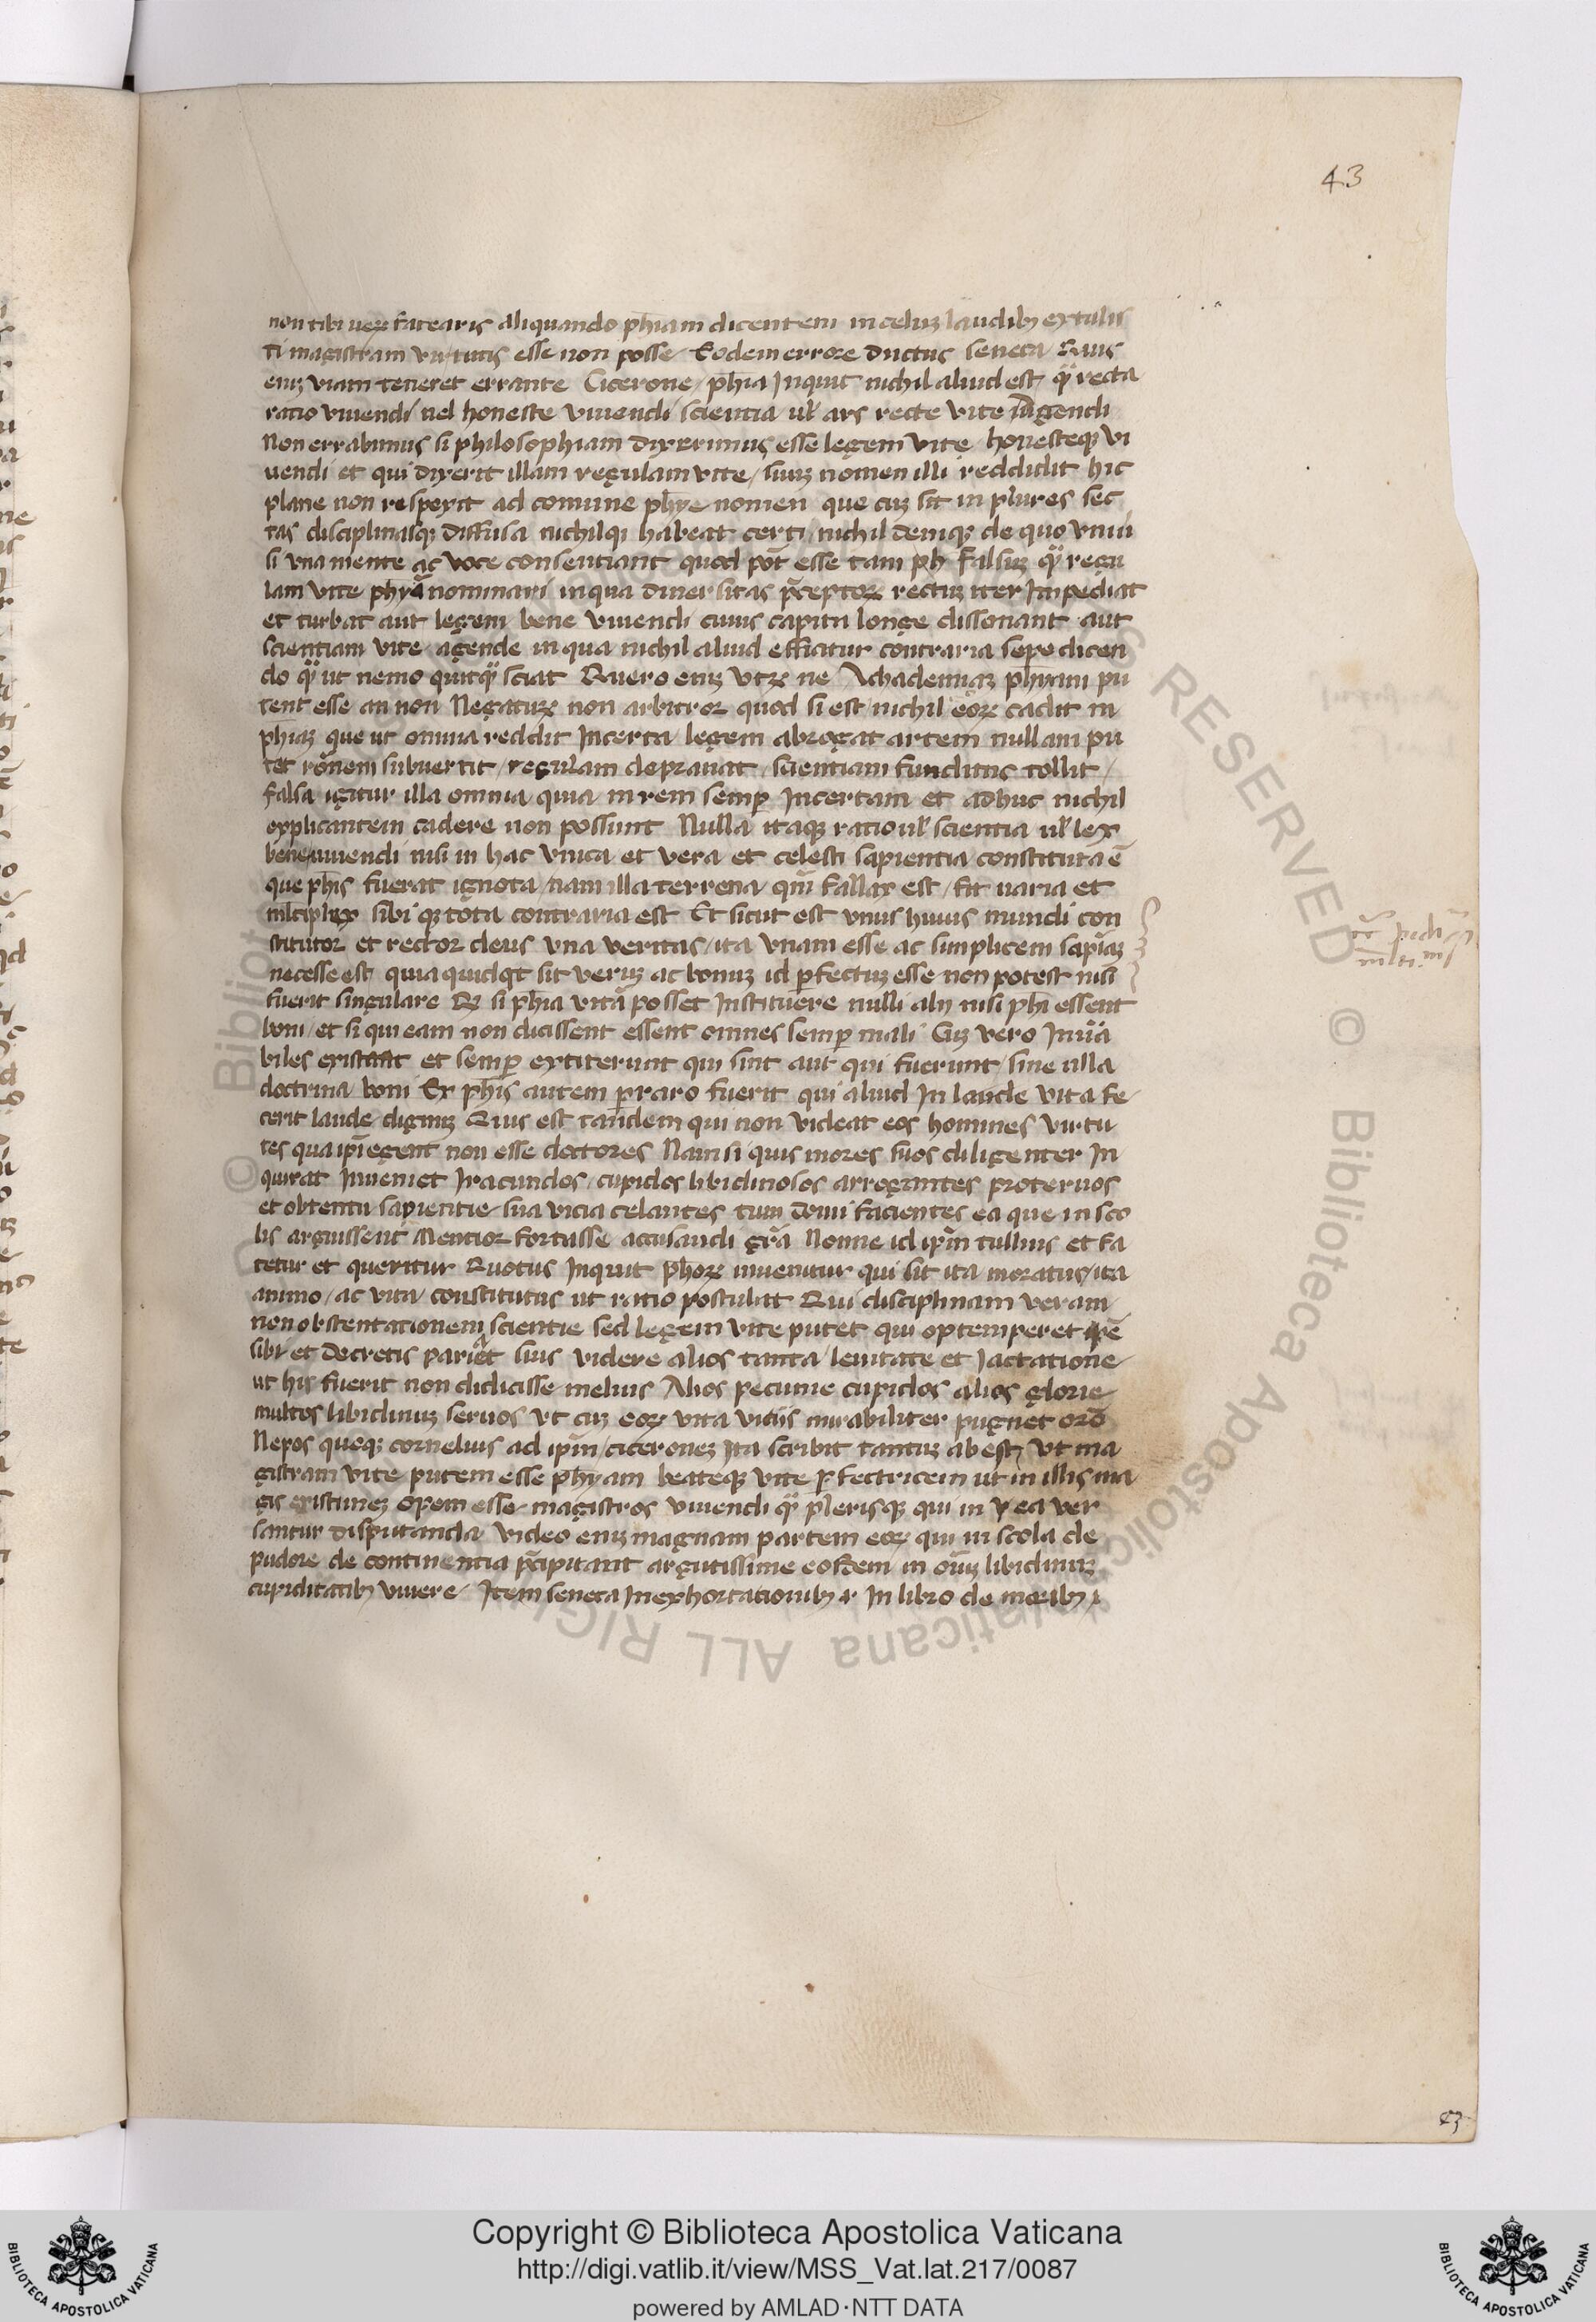 43
non tibi uerꝝ fatearis aliquando ph̅iam dicentem in celuꝫ laudibꝫ extulis
ti magistram virtutis esse non posse Eodem errore ductus seneca Quis
eniꝫ viam teneret errante Cicerone / ph̅ia Inquit nichil aliud est / qͣ̅ recta
ratio viuendi uel honeste viuendi scientia ul̕ ars recte vite agendi
Non errabimus si philosophiam dixerimus esse legem vite honesteqꝫ vi
uendi et qui dixerit illam regulam vite / suuꝫ nomen illi reddidit hic
plane non respexit ad comune ph̅ye nomen que cuꝫ sit in plures sec
tas disciplinasqꝫ diffusa nichilqꝫ habeat certi / nichil deniqꝫ de quo vniu̅
si vna mente ac voce consentiant quod pot̅ esse tam falsuꝫ qͣ̅ regu
lam vite phya̅ nominari in qua diuersitas p̅ceptoꝝ rectuꝫ iter Impediat
et turbat aut legem bene viuendi cuius capita longe dissonant aut
scientiam vite agende in qua nichil aliud efficitur contraria sepe dicen
do qͣ̅ ut nemo quicqͣ̅ sciat Quero eniꝫ vtꝝ ne Achademiaꝫ ph̅yam pu
tent esse an non Negaturꝝ non arbitror quod si est / nichil eoꝝ cadit in
ph̅iaꝫ que ut omnia reddit Incerta legem abrogat artem nullam pu
tet ro̅nem subuertit / regulam deprauat / scientiam funditus tollit /
falsa igitur illa omnia quia in rem semꝑ Incertam et adhuc nichil
explicantem cadere non possunt Nulla itaqꝫ ratio ul̕ scientia ul̕ lex
bene viuendi nisi in hac vnica et vera et celesti sapientia constituta e̅
que ph̅is fuerat ignota / nam illa terrena qm̅ fallax est / fit varia et
ml̅tiplex sibi qꝫ tota contraria est Et sicut est vnus huius mundi con
stitutor et rector deus vna veritas / ita vnam esse ac simplicem sapi̅aꝫ
necesse est quia quidqͥt sit veruꝫ ac bonuꝫ id ꝑfectuꝫ esse non potest nisi
fuerit singulare Qꝫ si ph̅ia vita̅ posset Instituere nulli alij nisi ph̅i essent
boni / et si qui eam non dicissent essent omnes semꝑ mali Cuꝫ vero Inu̅a
biles existant et semꝑ extiterunt qui sint aut qui fuerunt / sine ulla
doctrina boni Ex ph̅is autem ꝑraro fuerit qui aliud In laude vita fe
cerit laude dignuꝫ Quis est tandem qui non videat eos homines virtu
tes qua ip̅i egent non esse doctores Nam si quis mores suos diligenter In
quirat Inueniet Iracundos / cupidos libidinosos arrogantes proteruos
et obtentu sapientie sua vicia celantes tum domi facientes ea que in sco
lis arguissent Mentior fortasse accusandi gr̅a Nonne id ip̅m tullius et fa
tetur et queritur Quotus Inquit ph̅oꝝ inuenitur qui sit ita moratus / ita
animo / ac vita constitutus ut ratio postulat Qui disciplinam veram
non obstentationem scientie sed legem vite putet qui optemperet ip̅e
sibi et decretis pariat suis videre alios tanta leuitate et Iactatione
ut his fuerit non didicisse melius Alios pecunie cupidos alios glorie
multos libidinuꝫ seruos vt cuꝫ eoꝝ vita vitijs mirabiliter pugnet oro̅
Nepos queqꝫ cornelius ad ip̅m / ciceroneꝫ Ita scribit tantuꝫ abest / vt ma
gistram vite putem esse ph̅yam beateqꝫ vite ꝑfectricem ut in illis ma
gis existimeꝫ opem esse magistros viuendi qͣ̅ plerisqꝫ qui in ea ver
santur disputanda video eniꝫ magnam partem eoꝝ qui in scola de
pudore de continentia p̅cipitant argutissime eosdem in oi̅uꝫ libidinuꝫ
cupiditatibꝫ viuere Item seneca In exhortationibꝫ r In libro de moribꝫ
43
Copyright © Biblioteca Apostolica Vaticana
http://digi.vatlib.it/view/MSS_Vat.lat.217/0087
powered by AMLAD·NTT DATA
BIBLIOTECA APOSTOLICA VATICANA
BIBLIOTECA APOSTOLICA VATICANA